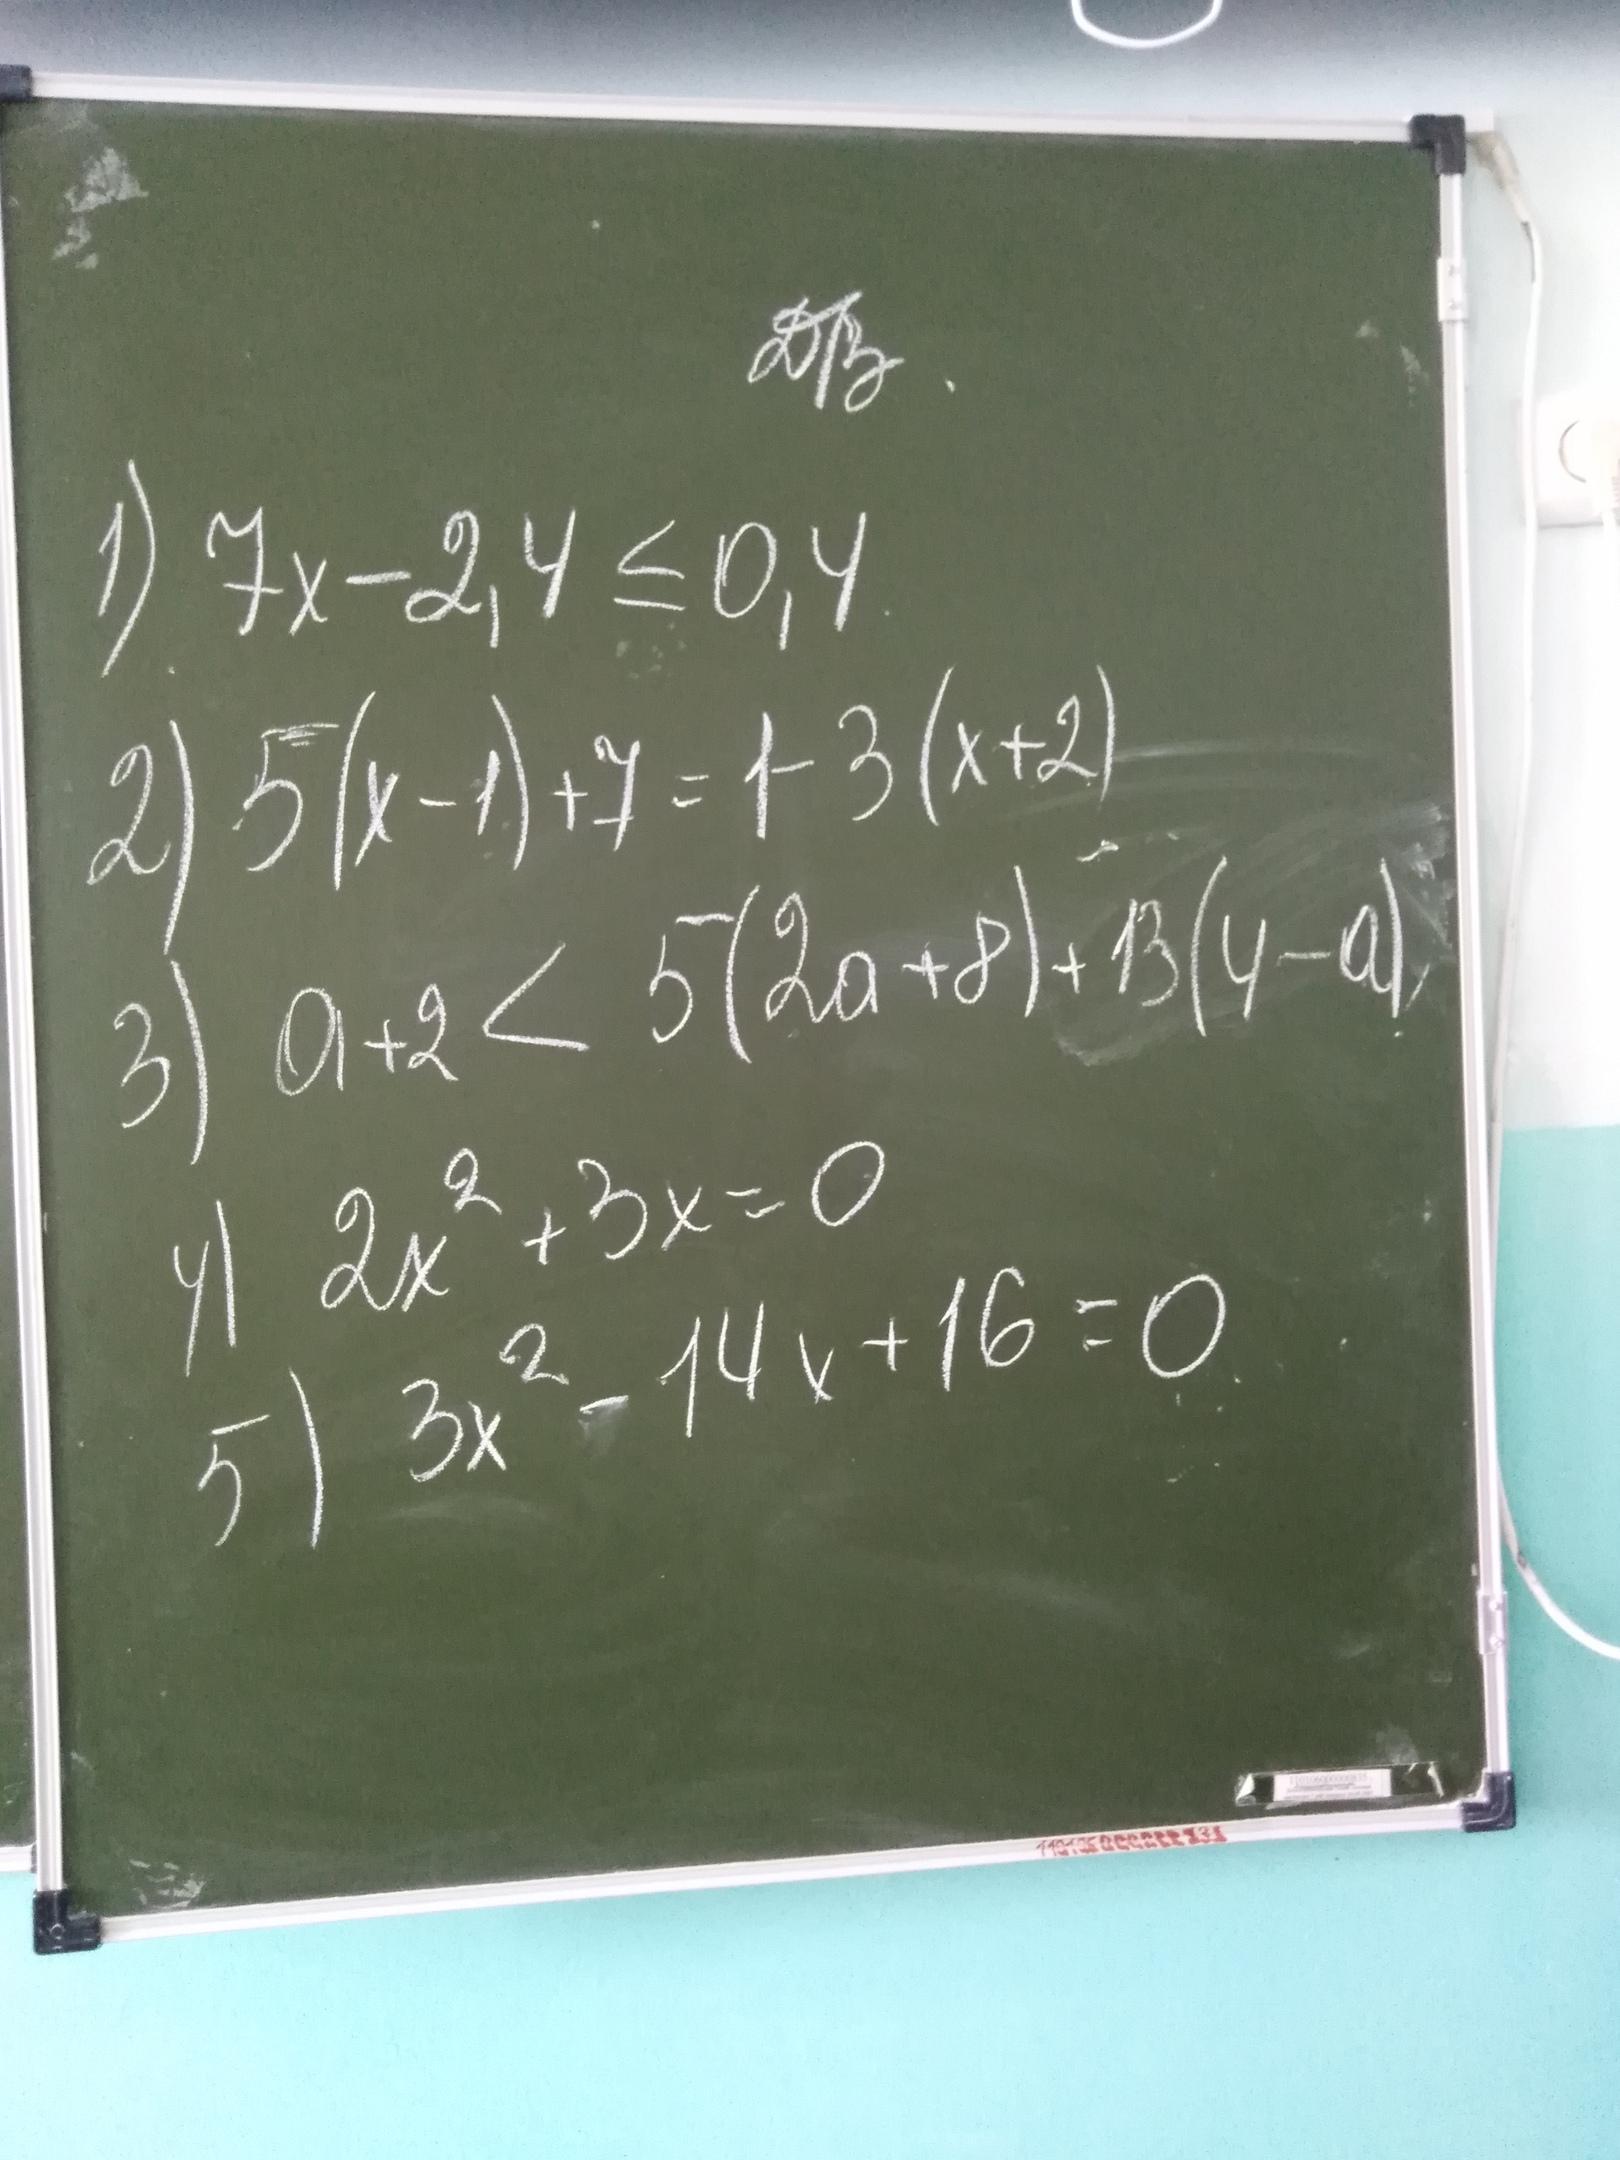 Д/з.
1) 7x-2,4 ≤ 0,4
2) 5(x-1)+7=1-3(x+2)
3) a+2 < 5(2a+8)+13(4-a)
4) 2x²+3x=0
5) 3x²-14x+16=0